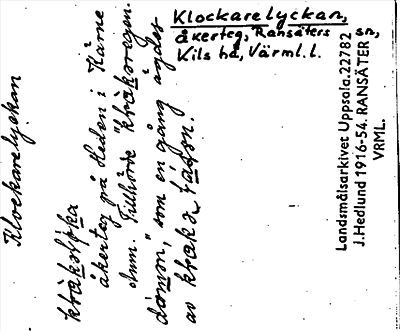 Klockarelyckan,
åkerteg, Ransäters sn,
Kils hd, Värml. l.
Klockarelyckan
åkerteg på Heden i Kärne
dum. Tillhörde "kråkoregen
dömen," som en gång ägdes
av kråka fáọon.
Landsmålsarkivet Uppsala. 22782
J. Hedlund 1916-54. RANSÄTER
VRML.